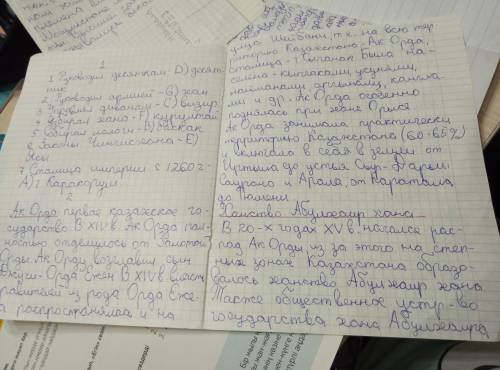 1
1. Руководил десятком - D) десят-
ник
2 Руководил армией - G) хан
3. Управлял диваном - C) визирь
4 Избирал хана - F) курултай
5 Собирал налоги - B) баскак
6 Законы Чингисхана - E)
Ясы
7 Столица империи с 1260 г -
A) г Каракорум
2
Ак Орда первое казахское го-
сударство. В XIV в. Ак Орда пол-
ностью отделилось от Золотой
Орды. Ак Орду возглавил сын
Джучи - Орда Ежен В XIV в. власть
правителей из рода Орда Еже-
на распространялась и на
улица Шейбани, т.к. на всю тер
риторию Казахстана - Ак Орда,
столица - г Сыганак Была на-
селена - кыпчаками, усунями,
найманами, аргынами, канглы-
ми и др. Ак Орда особенно
поднялась при хане Орысе
Ак Орда занимала практически
территорию Казахстана (60-65%)
и включала в себя в земли от
Иртыша до устья Сыр-Дарьи
Саурана и Арала, от Каратала
до Тюмени
Ханство Абулхаир хана
В 20-х годах XV в. начался рас-
пад Ак Орды из за этого на степ-
ных зонах Казахстана образо-
валось ханство Абулхаир хана
Также общественное устр-во
государства хана Абулхаира